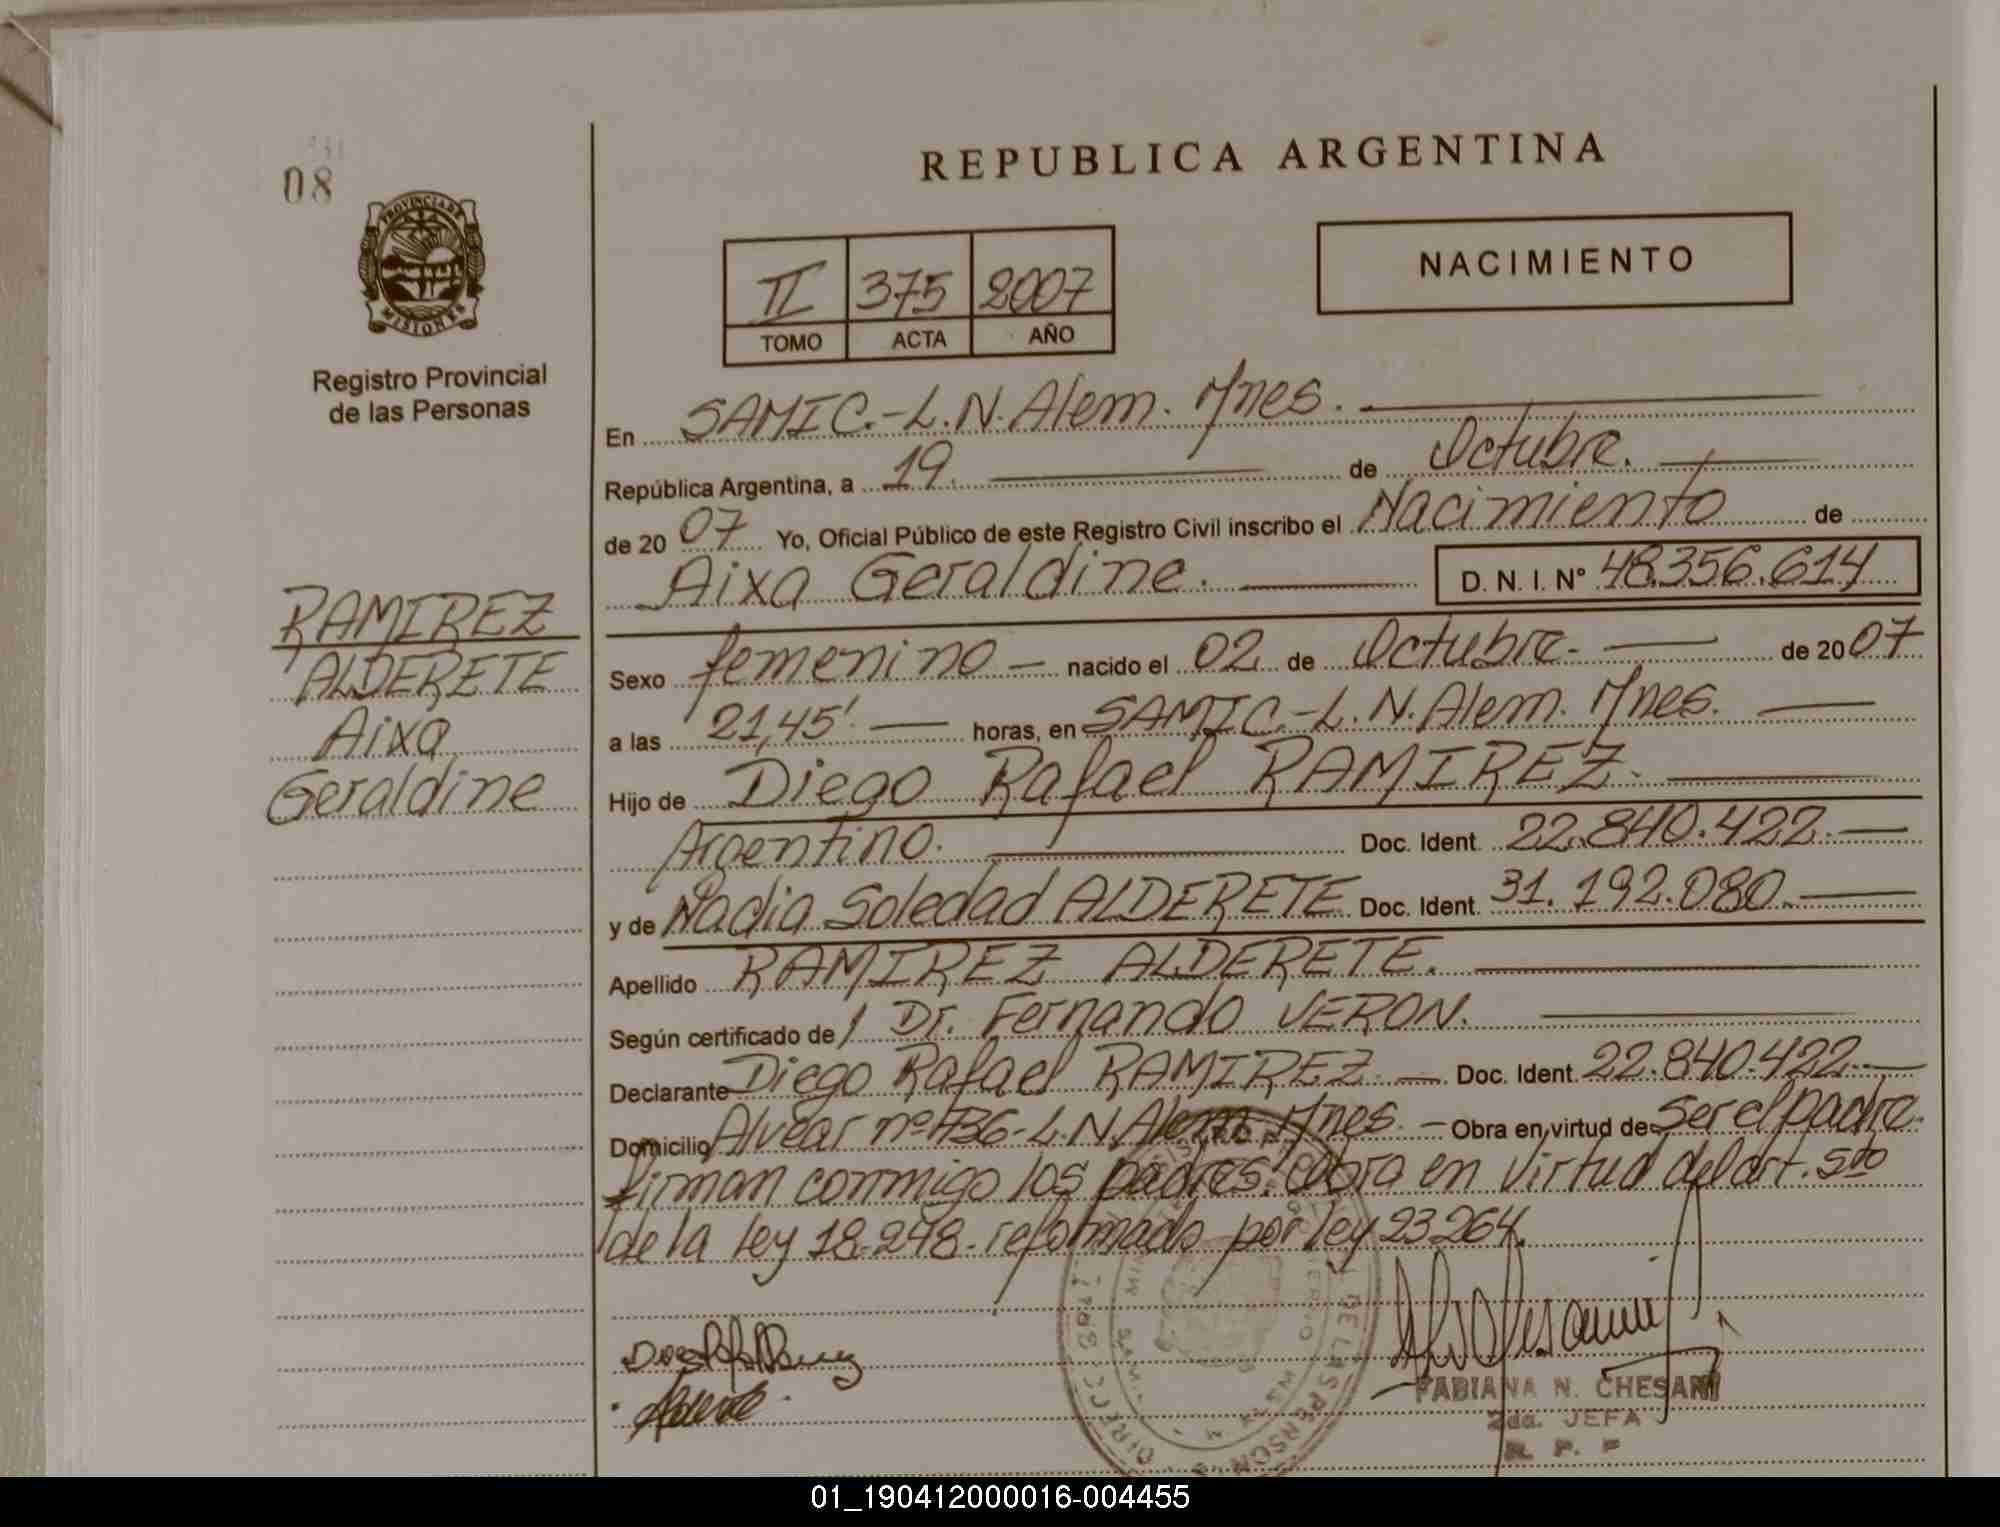 08
PROVINCIA DE
MISIONES
Registro Provincial
de las Personas
RAMIREZ
ALDERETE
Aixa
Geraldine
REPUBLICA ARGENTINA
II 375 2007
TOMO ACTA AÑO
NACIMIENTO
En SAMIC.-L.N.Alem. Mnes.
República Argentina, a 19. de Octubre.
de 20 07 Yo, Oficial Público de este Registro Civil inscribo el Nacimiento de
Aixa Geraldine. D. N. I. N° 48.356.614
Sexo femenino nacido el 02 de Octubre. de 20 07
a las 21,45' horas, en SAMIC.-L.N.Alem. Mnes.
Hijo de Diego Rafael RAMIREZ.
Argentino. Doc. Ident. 22.840.422.
y de Nadia Soledad ALDERETE Doc. Ident. 31.192.080.
Apellido RAMIREZ ALDERETE.
Según certificado de Dr. Fernando VERON.
Declarante Diego Rafael RAMIREZ. Doc. Ident. 22.840.422.
Domicilio Alvear nº 736-L.N.Alem. Mnes. Obra en virtud de Ser el padre.
firman conmigo los padres. Obra en virtud del art. 5to
de la ley 18.248. reformado por ley 23264.
FABIANA N. CHESANI
2da. JEFA
R. P. P
01_190412000016-004455